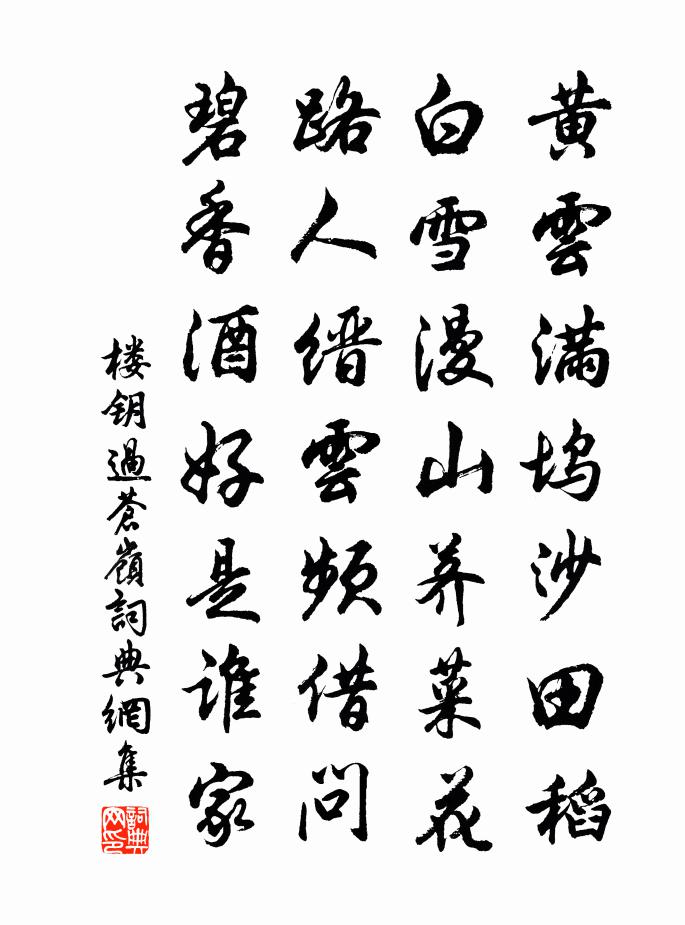 黄雲滿坞沙田稻
白雪漫山荞菜花
路人缙雲频借问
碧香酒好是谁家
楼钥過蒼嶺詞典網集
詞典网印